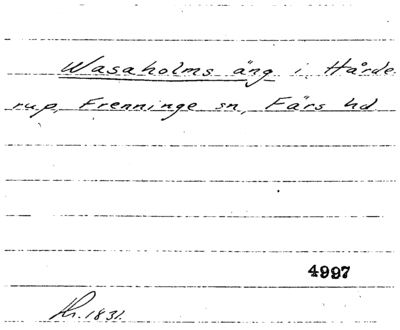 Wasaholms äng i Hårde
rup, Frenninge sn, Färs hd
4997
Hr. 1831.